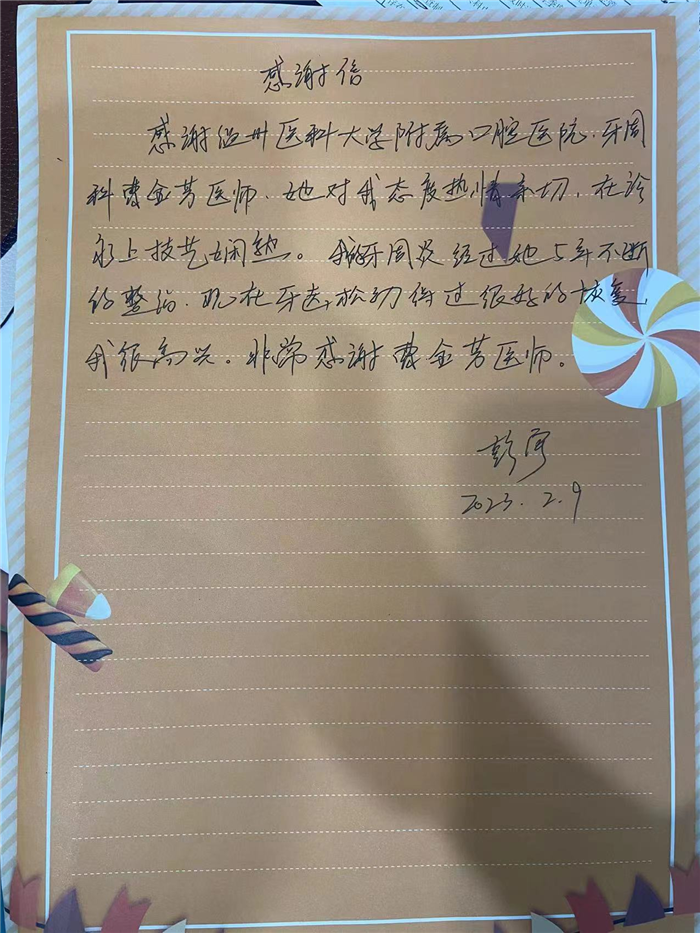 感谢信
感谢温州医科大学附属口腔医院、牙周
科曹金芳医师、她对我态度热情亲切，在诊
疗上技艺娴熟。我的牙周炎经过她5年不断
的整治、现在牙齿松动得过很好的恢复，
我很高兴。非常感谢曹金芳医师。
2023.2.9